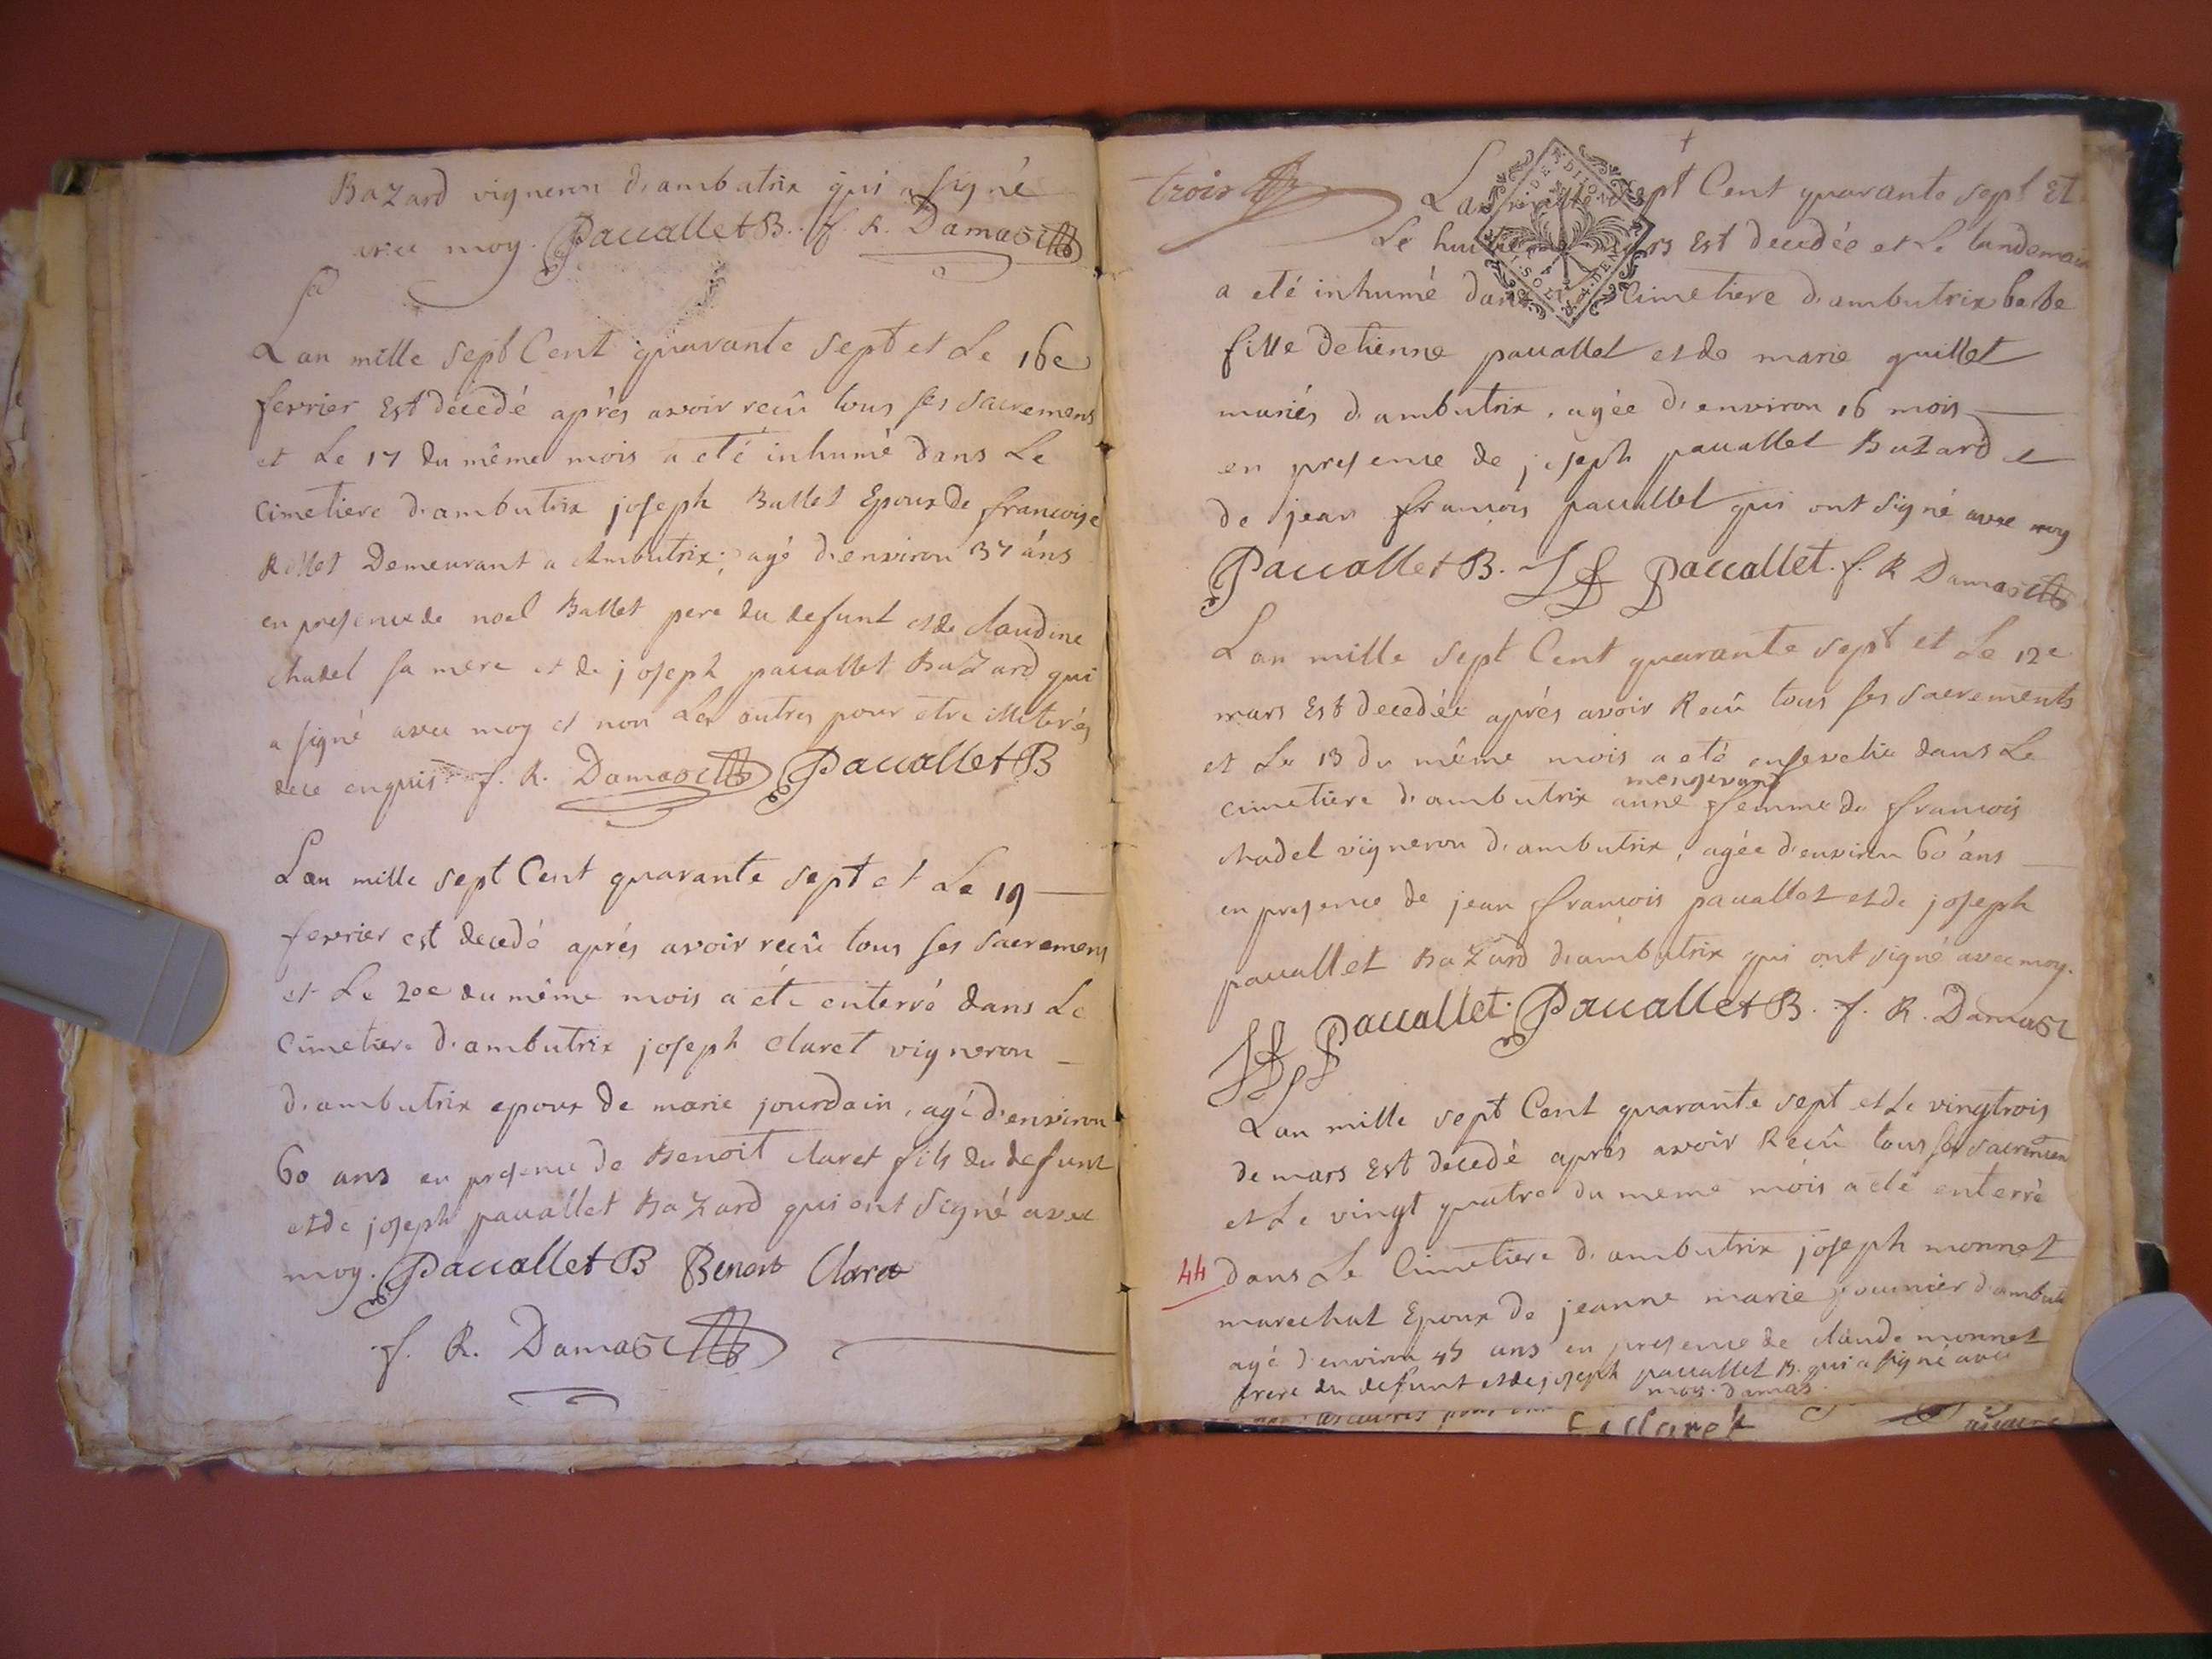 Bazard vigneron d'ambutrix qui a signé
avec moy. Paccallet B. f. R. Damas
Lan mille sept Cent quarante sept et Le 16e
fevrier Est decedé aprés avoir recû tous ses sacremens
et Le 17 du même mois a eté inhumé dans Le
cimetiere d'ambutrix joseph Ballet Epoux de francoise
Rollet Demeurant a Ambutrix; agé d'environ 37 ans
en presence de noel Ballet pere du defunt et de claudine
chadel sa mere et de joseph paccallet BaZard qui
a signé avec moy et non Les autres pour etre illiterés
de ce enquis f. R. Damas Paccallet B
Lan mille sept Cent quarante sept et Le 19
fevrier est decedé aprés avoir recû tous ses sacremens
et Le 20e du même mois a été enterré dans Le
Cimetiere d'ambutrix joseph claret vigneron
d'ambutrix epoux de marie jourdain, agé d'environ
60 ans en presence de Benoit claret fils du defunt
et de joseph paccallet BaZard qui ont signé avec
moy. Paccallet B Benoit Claret
f. R. Damas
trois
Lan mille sept Cent quarante sept Et
Le huit mars Est decedée et Le landemain
a eté inhumé dans cimetiere d'ambutrix
fille detienne paccallet et de marie guillet
mariés d'ambutrix, agée d'environ 16 mois
en presence de joseph paccallet Bazard et
de jean francois paccallet qui ont signé avec moy
Paccallet B. Jf Paccallet. f. R Damas
Lan mille sept Cent quarante sept et Le 12e
mars Est decedée aprés avoir Recû tous ses sacrements
et Le 13 du même mois a eté ensevelie dans Le
cimetiere d'ambutrix anne femme de francois
chadel vigneron d'ambutrix, agée d'environ 60 ans
en presence de jean francois paccallet et de joseph
paccallet BaZard d'ambutrix qui ont signé avec moy.
Jf Paccallet. Paccallet B. f. R. Damas
Lan mille sept Cent quarante sept et Le vingtrois
de mars Est decedé aprés avoir Recû tous ses sacremen
et Le vingt quatre du meme mois a eté enterré
44 dans Le Cimetiere d'ambutrix joseph monnet
marechal Epoux de jeanne marie fournier d'ambut
agé d'environ 45 ans en presence de claude monnet
frere du defunt et de joseph paccallet B. qui a signé avec
moy. Damas